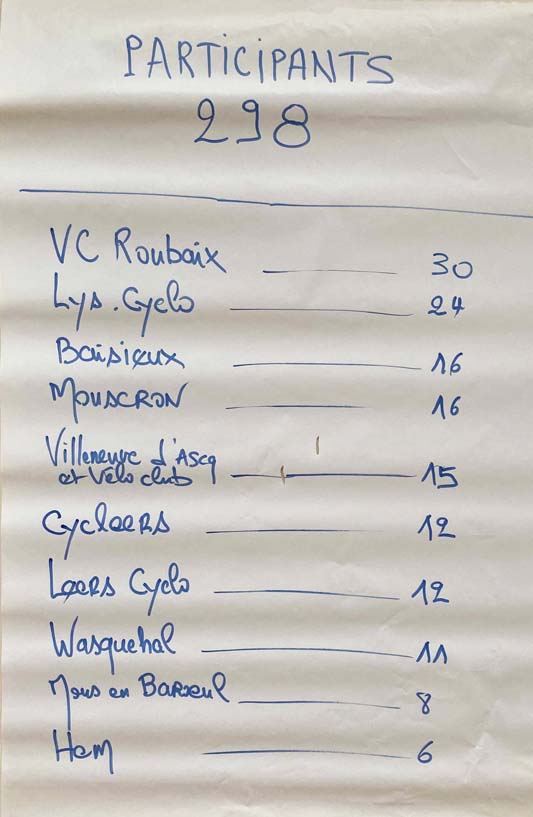 PARTICIPANTS
298
VC Roubaix 30
Lys. Cyclo 24
Baisieux 16
MOUSCRON 16
Villeneuve d'Ascq
et Vélo club 15
CYCLEERS 12
LEERS Cyclo 12
Wasquehal 11
Mons en Baroeul 8
Hem 6